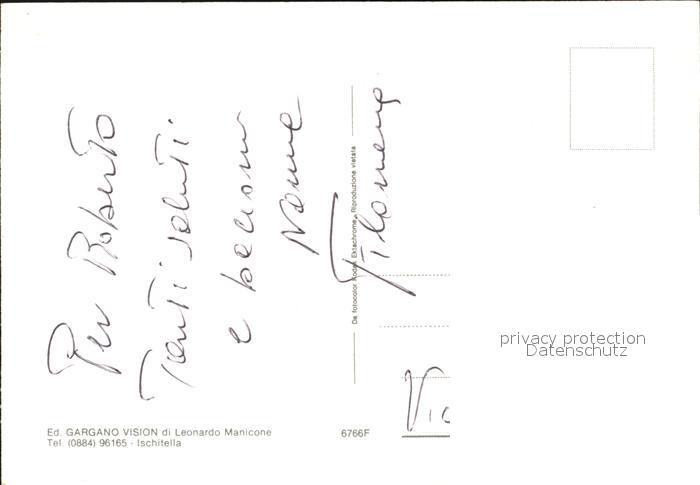 Per Roberto
Tanti saluti
e bacioni
Nonna
Filomena
Da fotocolor Kodak Ektachrome - Riproduzione vietata
Ed. GARGANO VISION di Leonardo Manicone
Tel. (0884) 96165 - Ischitella
6766F
privacy protection
Datenschutz